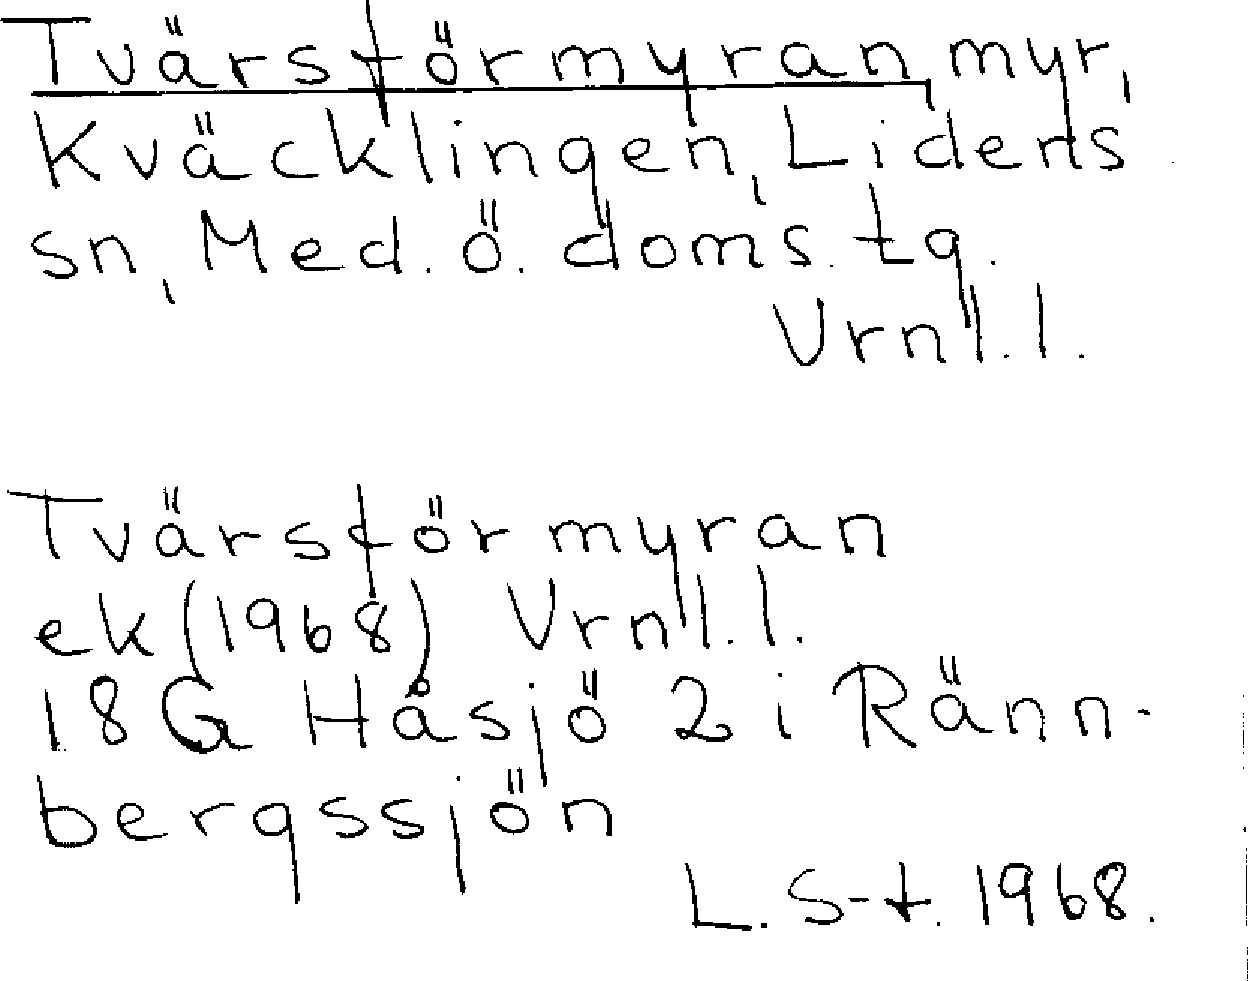 Tvärsförmyran myr,
Kväcklingen, Lidens
sn, Med. ö. doms. tg.
Vrnl. l.
Tvärsförmyran
ek (1968) Vrnl. l.
18G Håsjö 2 i Ränn-
bergssjön
L. S-t. 1968.